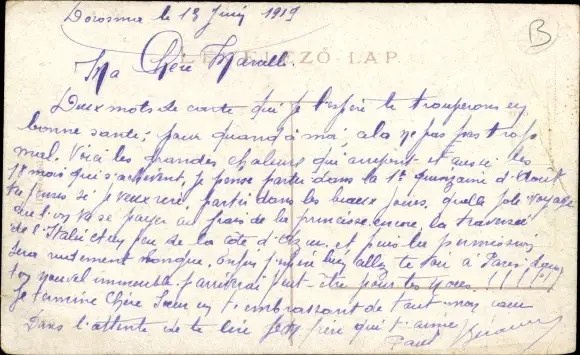 Dorosma le 13 Juin 1919
B
LEVELEZŐ LAP
Ma Chère Marcelle
Deux mots de carte qui je l'espère te trouverons en
bonne santé, pour quand à moi, a la ne pas pas trop
mal. Voici les grandes chaleurs qui arrivent et aussi les
18 mois qui s'achèvent. Je pense partir dans la 1e quinzaine d'Août
tu penses si je veux partir dans les beaux jours, quelle jolie voyage
que l'on va se payer au frais de la princesse encore, la traversée
de l'Italie et un peu de la côte d'Azur. et puis les permissions
sera rudement longue, enfin j'espère bien aller te voir à Paris dans
ton nouvel immeuble. j'arriverai peut-être pour tes noces
Je termine Chère Sœur en t'embrassant de tout mon cœur
Dans l'attente de te lire ton frère qui t'aime
Paul